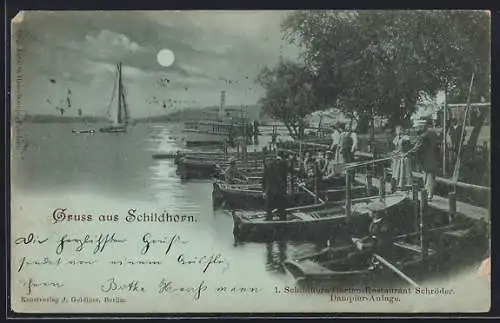 Gruss aus Schildhorn.
Die herzlichsten Grüße
sendet von einem Ausflug
Ihnen Bothe Herrmann
1. Schildhorn Garten-Restaurant Schröder.
Dampfer-Anlage.
Kunstverlag J. Goldiner, Berlin.